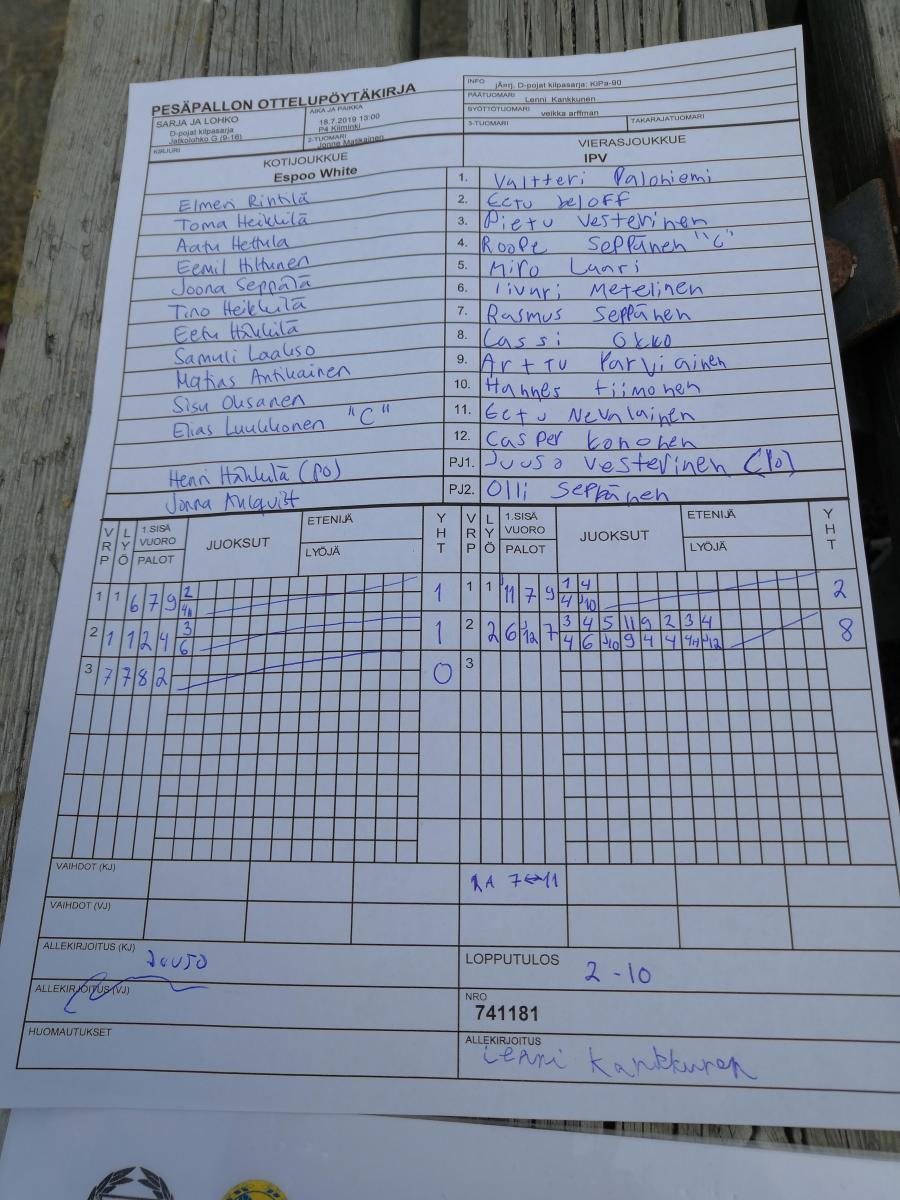 PESÄPALLON OTTELUPÖYTÄKIRJA
SARJA JA LOHKO
D-pojat kilpasarja
Jatkolohko G (9-16)
AIKA JA PAIKKA
18.7.2019 13:00
P4 Kiiminki
KIRJURI
2-TUOMARI
Jonne Matikainen
INFO jÄrj. D-pojat kilpasarja: KiPa-90
PÄÄTUOMARI Lenni Kankkunen
SYÖTTÖTUOMARI veikka arffman
3-TUOMARI
TAKARAJATUOMARI
KOTIJOUKKUE
Espoo White
VIERASJOUKKUE
IPV
Elmeri Rintilä 1. Valtteri Paloniemi
Toma Heikkilä 2. Eetu beloff
Aatu Hettula 3. Pietu Vesterinen
Eemil Hiltunen 4. Roope Seppänen "C"
Joona Seppälä 5. Miro Laari
Tino Heikkilä 6. Iivari Metelinen
Eetu Häkkilä 7. Rasmus Seppänen
Samuli Laakso 8. Cassi Okko
Matias Antikainen 9. Arttu Parviainen
Sisu Oksanen 10. Hannes tiimonen
Elias Luukkonen "C" 11. Eetu Nevalainen
12. Casper konohen
Henri Häkkilä (PO) PJ1. Juuso Vesterinen (PO)
Jonna PJ2. Olli Seppänen
VRP LYÖ 1.SISÄ VUORO PALOT JUOKSUT ETENIJÄ LYÖJÄ YHT VRP LYÖ 1.SISÄ VUORO PALOT JUOKSUT ETENIJÄ LYÖJÄ YHT
1 1 6 7 9 2 1 1 1 11 7 9 1 4 2
4 J10
2 1 1 2 4 3 1 2 2 6 J12 7 3 4 5 11 9 2 3 4 8
6 4 6 J10 9 4 4 J12
3 7 7 8 2 0 3
VAIHDOT (KJ) 7↔11
VAIHDOT (VJ)
ALLEKIRJOITUS (KJ) Juuso
LOPPUTULOS 2-10
ALLEKIRJOITUS (VJ)
NRO
741181
HUOMAUTUKSET
ALLEKIRJOITUS
Lenni Kankkunen